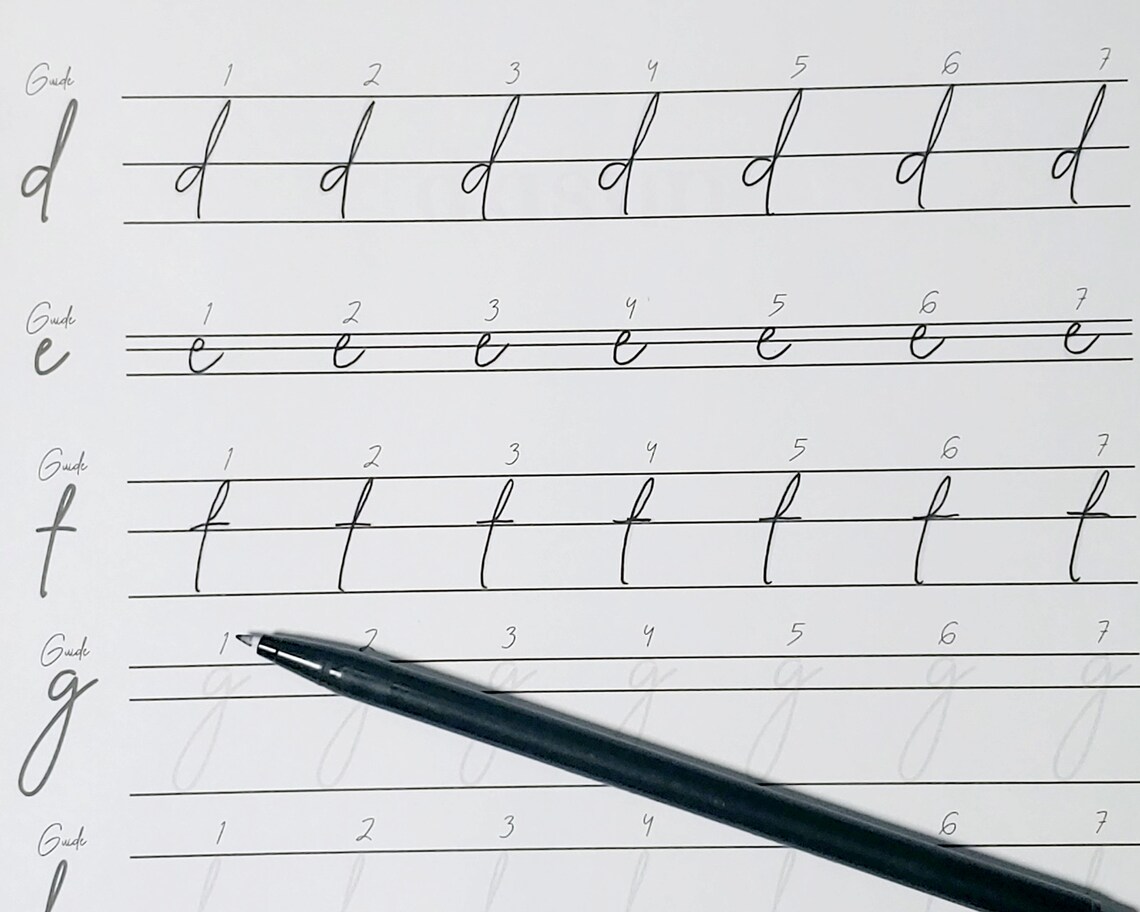 Guide 1 2 3 4 5 6 7
d d d d d d d d
Guide 1 2 3 4 5 6 7
e e e e e e e e
Guide 1 2 3 4 5 6 7
f f f f f f f f
Guide 1 2 3 4 5 6 7
g g g g g g g g
Guide 1 2 3 4 6 7